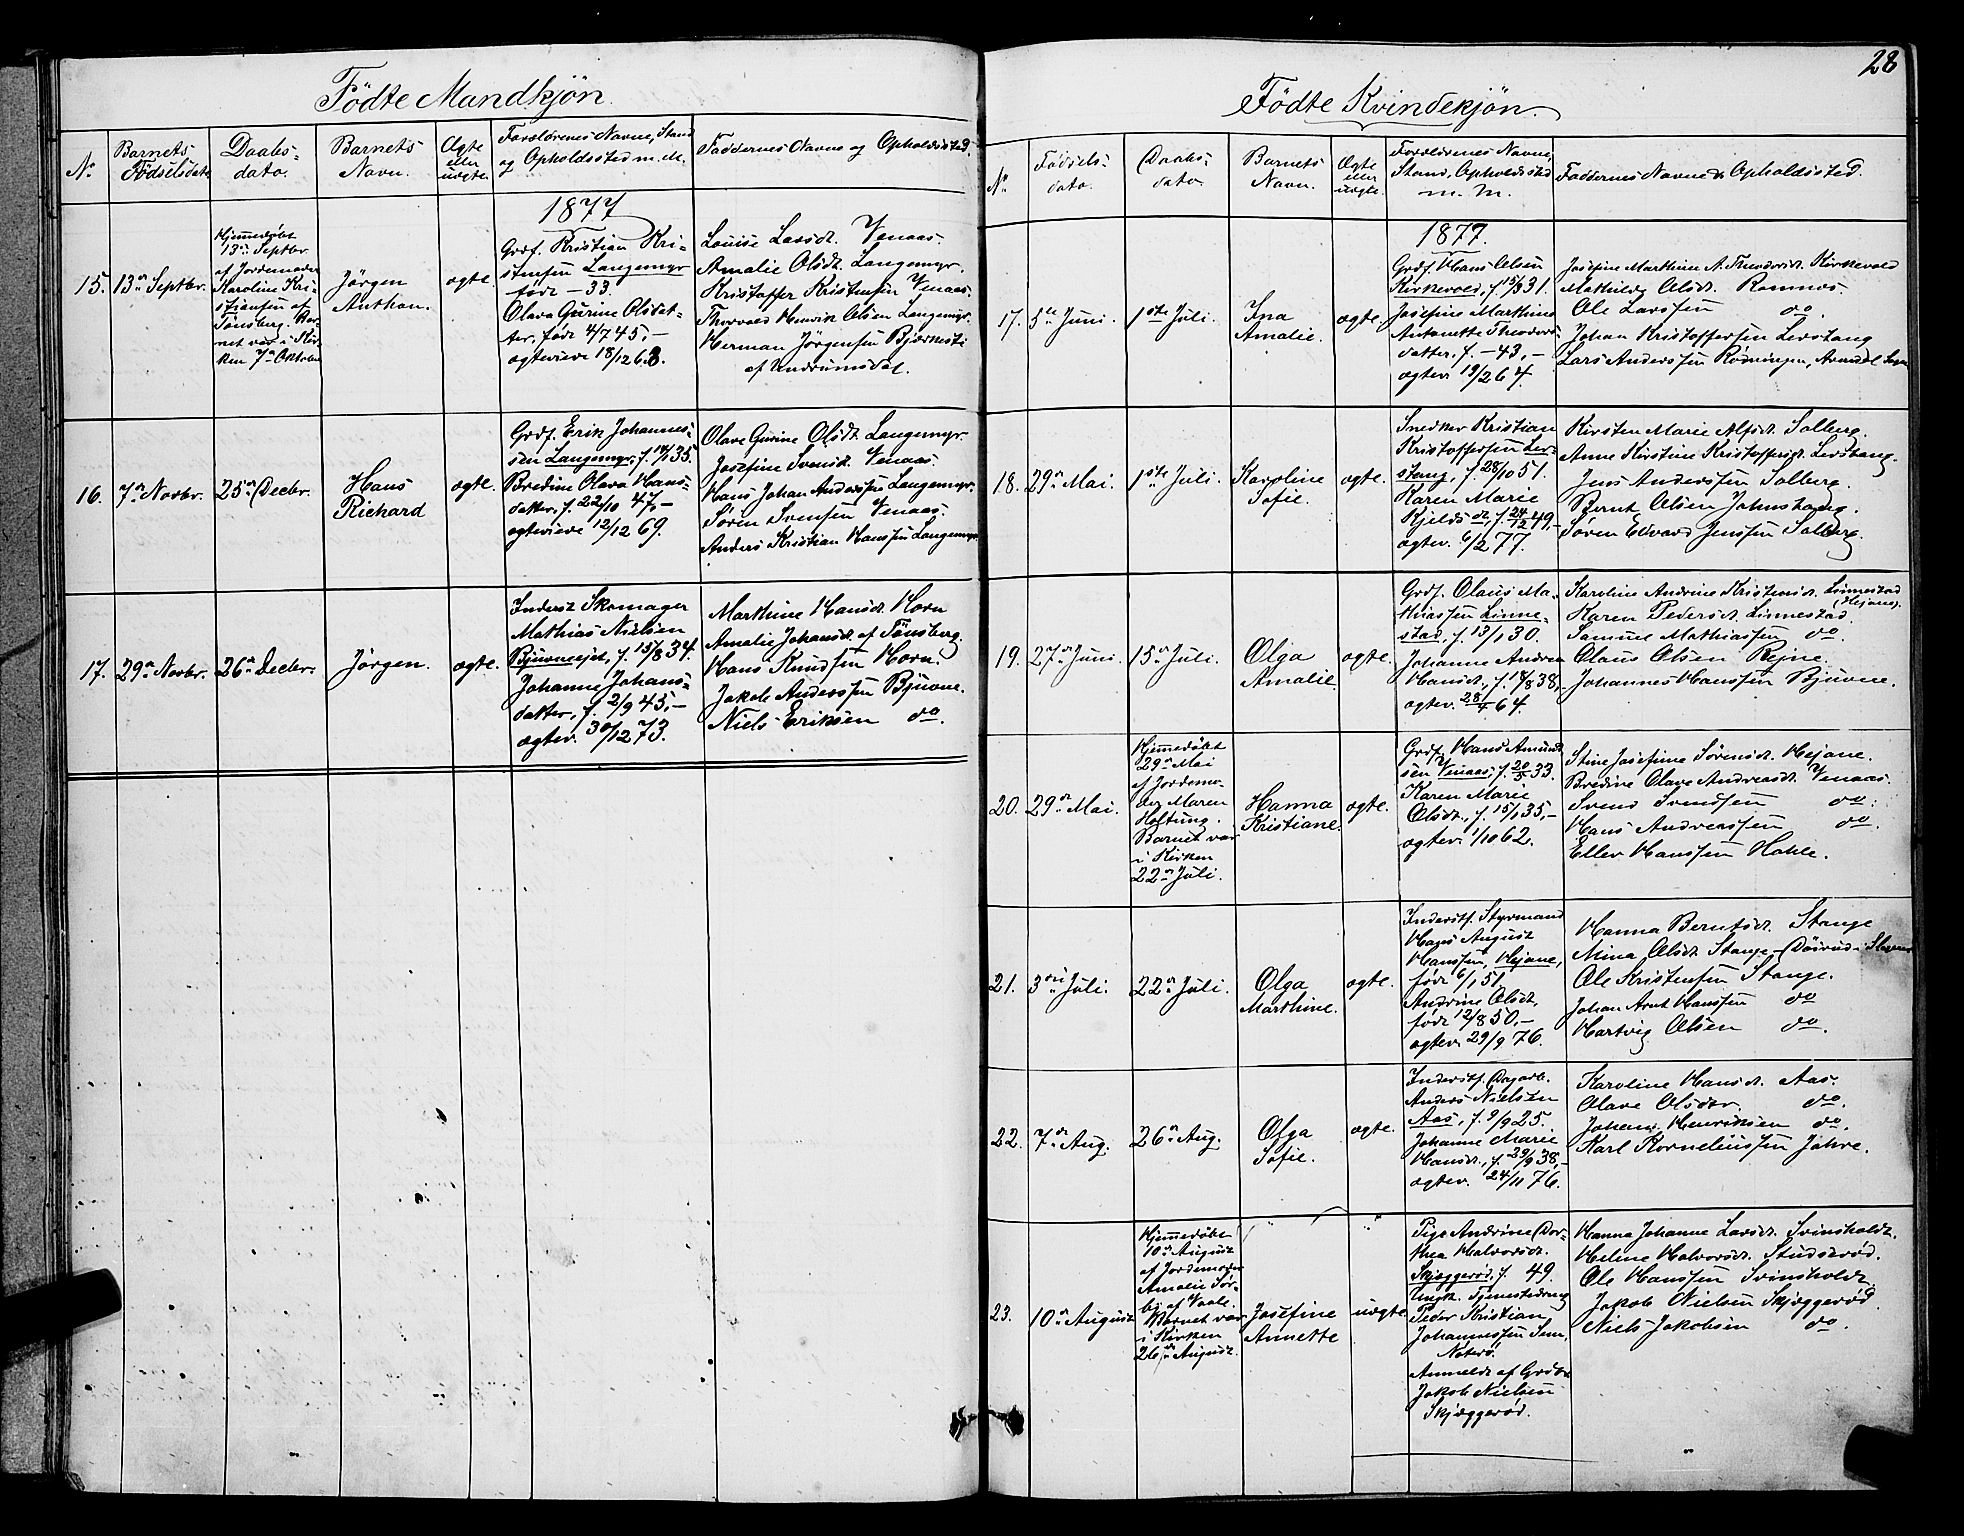 Fødte Mandkjøn.
No
Barnets Fødselsdato
Daabs-
dato.
Barnets
Navn.
Ægte
eller
uægte.
Forældrenes Navne, Stand
og Opholdssted m. M.
Faddernes Navne og Opholdssted.
1877
15.
13de Septbr.
Hjemmedøbt
13de Septbr.
af Jordemoder
Karoline Kri-
stiansen af
Tønsberg. Bar-
net var i Kir-
ken 7de Oktober
Jørgen
Anthon.
ægte.
Grdf. Kristian Kri-
stensen Langemyr
født -33.
Olava Gurine Olsdat-
ter, født 4/7 45,-
ægteviede 18/12 68.
Louise Larsdt. Venaas.
Amalie Olsdt. Langemyr.
Kristoffer Kristensen Venaas.
Thorvald Henrik Olsen Langemyr.
Herman Jørgensen Bjærnesti
af Undrumsdal.
16.
7de Novbr.
25de Decbr.
Hans
Richard
ægte.
Grdf. Erik Johannes-
sen Langemyr, f. 18/1 35.
Bredine Olava Hans-
datter, f. 22/10 47,-
ægteviede 12/12 69.
Olave Gurine Olsdt. Langemyr.
Josefine Svensdt. Venaas.
Hans Johan Anderssen Langemyr.
Søren Svensen Venaas.
Anders Kristian Hanssen Langemyr
17.
29de Novbr.
26de Decbr.
Jørgen.
ægte.
Inderst Skomager
Mathias Nielsen
Bjuvneejet, f. 15/8 34.
Johanne Johans-
datter, f. 2/9 45,-
ægtev. 30/12 73.
Marthine Hansdt. Horn
Amalie Johansdt. af Tønsberg.
Hans Knudsen Horn.
Jakob Anderssen Bjuvne.
Niels Eriksen do.
28
Fødte Kvindekjøn.
No
Fødsels-
dato.
Daabs-
dato.
Barnets
Navn.
Ægte
eller
uægte.
Forældrenes Navne,
Stand, Opholdssted
m. M.
Faddernes Navne & Opholdssted.
1877.
17.
5te Juni.
1ste Juli.
Ina
Amalie.
ægte.
Grdf. Hans Olsen
Kirkevold, f. 15/3 31.
Josefine Marthine
Antonette Theodors-
datter, f. -43,-
ægtev. 19/2 64.
Josefine Marthine A. Theodorsdt. Kirkevold
Mathilde Olsdt. Ramnæs.
Ole Larssen do.
Johan Kristoffersen Lerstang
Lars Anderssen Rødningen,
18.
29de Mai.
1ste Juli.
Karoline
Sofie.
ægte.
Snedker Kristian
Kristoffersen Ler-
stang, f. 28/10 51.
Karen Marie
Kjeldsdt., f. 24/12 49,-
ægtev. 6/2 77.
Kirsten Marie Alfsdt. Solberg.
Anne Kirstine Kristoffersdt. Lerstang.
Jens Anderssen Solberg.
Bernt Olsen Johnstang.
Søren Edvard Jenssen Solberg.
19.
27de Juni.
15de Juli.
Olga
Amalie.
ægte.
Grdf. Olaus Ma-
thiassen Linne-
stad, f. 13/1 30.
Johanne Andrea
Hansdt., f. 18/8 38,-
ægtev. 28/4 64.
Karoline Andrine Kristensdt. Linnestad
(Hejane).
Karen Pedersdt. Linnestad.
Samuel Mathiassen do.
Olaus Olsen Rejne.
Johannes Hanssen Bjuvne.
20.
29de Mai.
Hjemmedøbt
29de Mai
af Jordemo-
der Maren
Holtung.
Barnet var
i Kirken
22de Juli.
Hanna
Kristiane.
ægte.
Grdf. Hans Amund-
sen Venaas, f. 20/5 33.
Karen Marie
Olsdt., f. 15/1 35,-
ægtev. 1/10 62.
Stine Josefine Sørensdt. Hejane.
Bredine Olave Andreasdt. Venaas.
Svend Svendsen do.
Hans Andreassen do.
Eller Hanssen Hakle.
21.
3die Juli.
22de Juli.
Olga
Marthine.
ægte.
Inderstf. Styrmand
Hans August
Hanssen, Hejane,
født 6/1 51
Andrine Olsdt.
født 12/8 50,-
ægtev. 29/9 76.
Hanna Berntsdt. Stange
Mina Olsdt. Stange-
Ole Kristensen Stange.
Johan Arnt Hanssen do
Hartvig Olsen do.
22.
7de Aug.
26de Aug.
Olga
Sofie.
ægte.
Inderstf. Dagarb.
Anders Nielsen
Aas, f. 9/9 25.
Johanne Marie
Hansdt., f. 29/9 38,-
ægtev. 24/11 76.
Karoline Hansdt. Aas.
Olave Olsdtr. do.
Johan Henriksen do.
Karl Korneliussen Jahre.
23.
10de August
Hjemmedøbt
10de August
af Jordemoder
Amalie Sør-
by af Vaale.
Barnet var
i Kirken
26de August.
Josefine
Annette
uægte
Pige Andrine Dor-
thea Halvorsdt.
Skjæggerød, f. 49.
Ungk. Tjenestedreng
Peder Kristian
Johannessen Sem,
Nøterø.
Anmeldt af Grdbr.
Jakob Nielsen
Skjæggerød.
Hanna Johanne Larsdt. Svinsholdt.
Heline Halvorsdt. Studserød.
Ole Hanssen Svinsholdt.
Jakob Nielsen Skjæggerød.
Niels Jakobsen do.